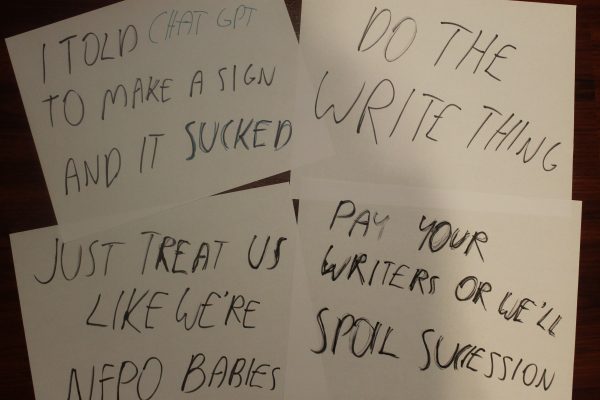 I TOLD CHAT GPT
TO MAKE A SIGN
AND IT SUCKED
DO THE
WRITE THING
JUST TREAT US
LIKE WE'RE
NEPO BABIES
PAY YOUR
WRITERS OR WE'LL
SPOIL SUCCESSION